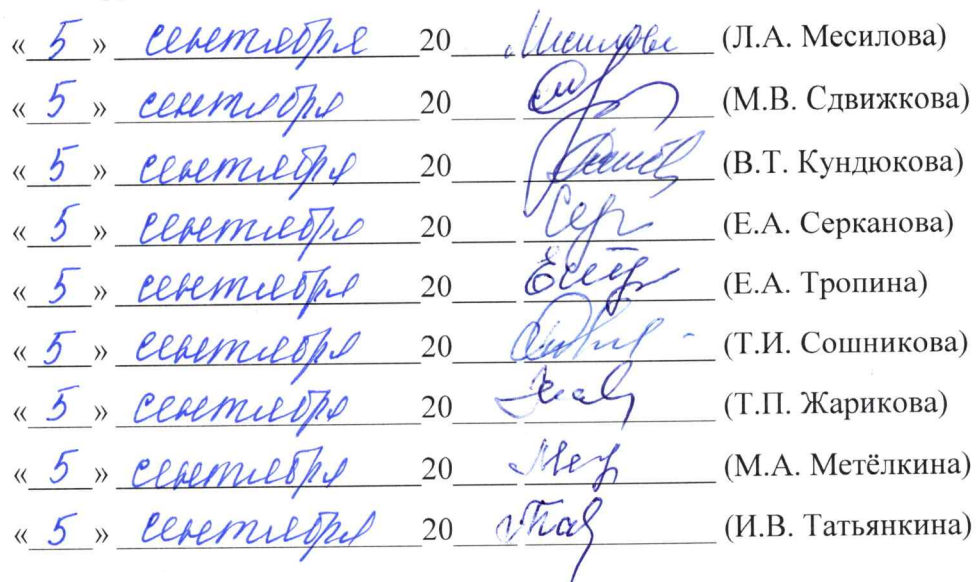 « 5 » сентября 20 (Л.А. Месилова)
« 5 » сентября 20 (М.В. Сдвижкова)
« 5 » сентября 20 (В.Т. Кундюкова)
« 5 » сентября 20 (Е.А. Серканова)
« 5 » сентября 20 (Е.А. Тропина)
« 5 » сентября 20 (Т.И. Сошникова)
« 5 » сентября 20 (Т.П. Жарикова)
« 5 » сентября 20 (М.А. Метёлкина)
« 5 » сентября 20 (И.В. Татьянкина)